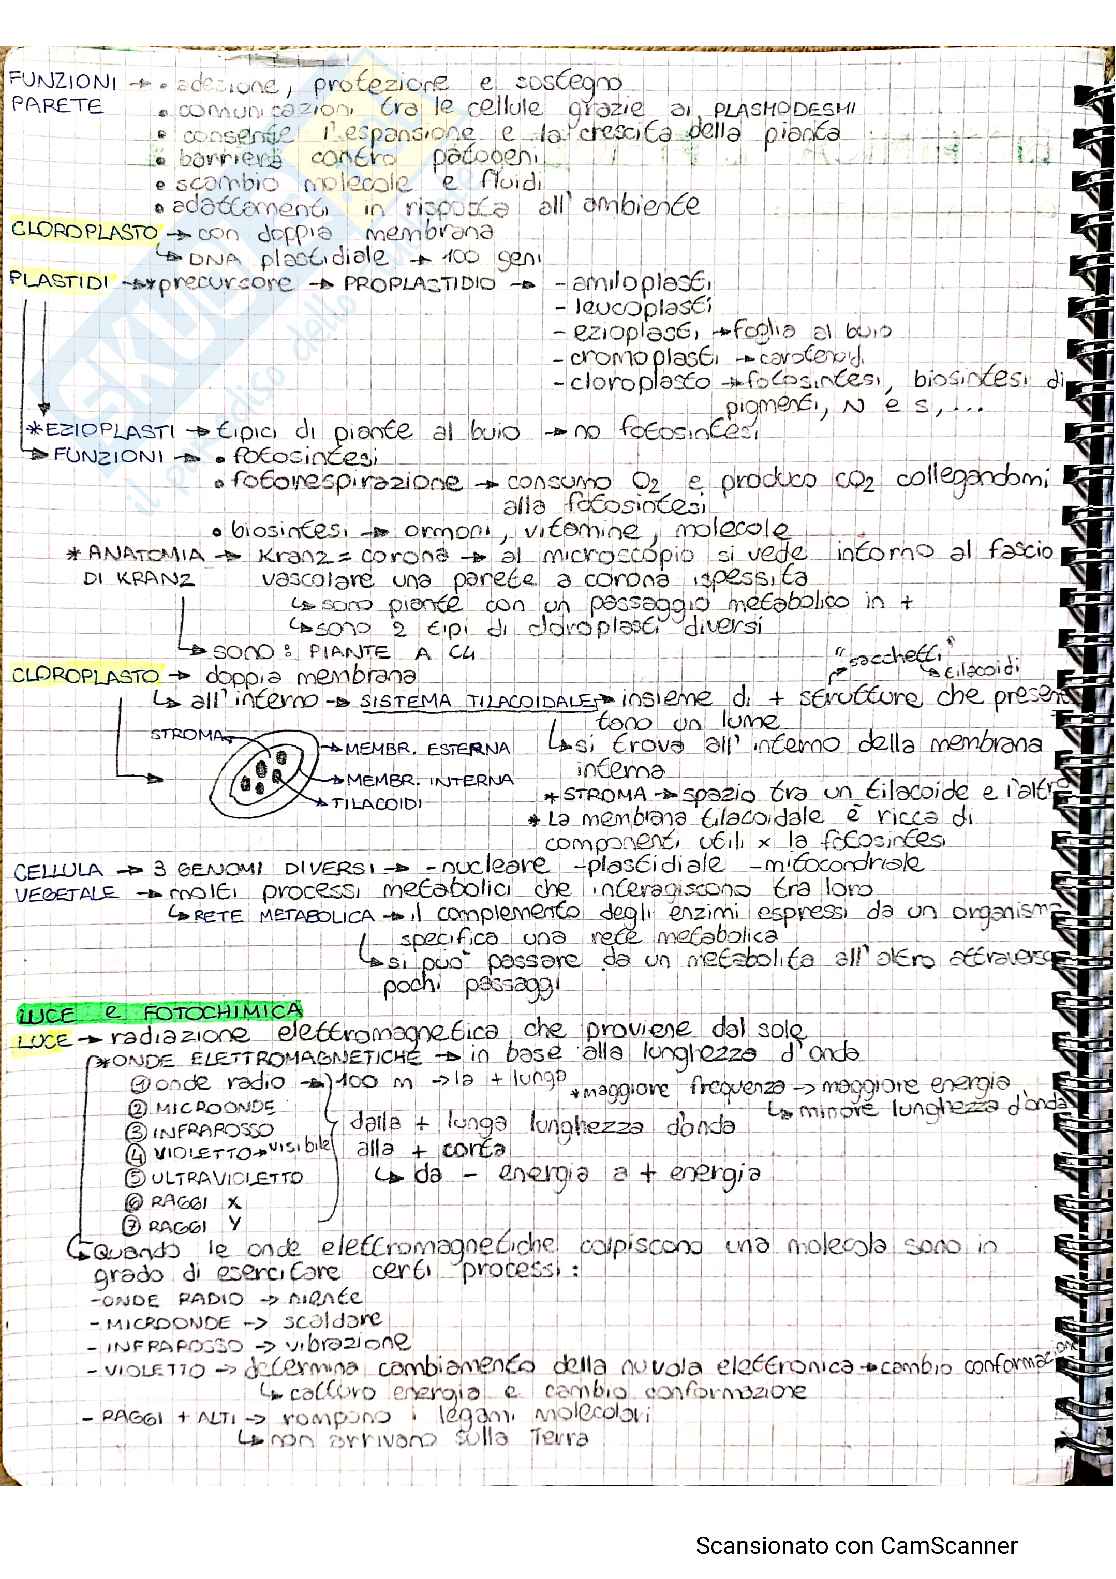 FUNZIONI → • adesione, protezione e sostegno
PARETE • comunicazioni tra le cellule grazie ai PLASMODESMI
• consente l'espansione e la crescita della pianta
• barriera contro patogeni
• scambio molecole e fluidi
• adattamenti in risposta all'ambiente
CLOROPLASTO → con doppia membrana
↳ DNA plastidiale → 100 geni
PLASTIDI → * precursore → PROPLASTIDIO → - amiloplasti
- leucoplasti
- ezioplasti → foglia al buio
- cromoplasti → carotenoidi
- cloroplasto → fotosintesi, biosintesi di
pigmenti, N e S, ...
* EZIOPLASTI → tipici di piante al buio → no fotosintesi
→ FUNZIONI → • fotosintesi
• fotorespirazione → consumo O2 e produco CO2 collegandomi
alla fotosintesi
• biosintesi → ormoni, vitamine, molecole
* ANATOMIA → Kranz = corona → al microscopio si vede intorno al fascio
DI KRANZ vascolare una parete a corona ispessita
↳ sono piante con un passaggio metabolico in +
↳ sono 2 tipi di cloroplasti diversi
↳ SONO: PIANTE A C4
"sacchetti"
CLOROPLASTO → doppia membrana ↳ tilacoidi
↳ all'interno → SISTEMA TILACOIDALE → insieme di + strutture che presen
tano un lume
STROMA → MEMBR. ESTERNA ↳ si trova all'interno della membrana
interna
→ MEMBR. INTERNA
* STROMA → spazio tra un tilacoide e l'altro
→ TILACOIDI
* La membrana tilacoidale è ricca di
componenti utili x la fotosintesi
CELLULA → 3 GENOMI DIVERSI → - nucleare - plastidiale - mitocondriale
VEGETALE → molti processi metabolici che interagiscono tra loro
↳ RETE METABOLICA → il complemento degli enzimi espressi da un organismo
specifica una rete metabolica
↳ si può passare da un metabolita all'altro attraverso
pochi passaggi
LUCE e FOTOCHIMICA
LUCE → radiazione elettromagnetica che proviene dal sole
* ONDE ELETTROMAGNETICHE → in base alla lunghezza d'onda
① onde radio → 100 m → la + lunga * maggiore frequenza → maggiore energia
② MICROONDE ↳ minore lunghezza d'onda
③ INFRAROSSO dalla + lunga lunghezza d'onda
④ VIOLETTO → visibile alla + corta
⑤ ULTRAVIOLETTO ↳ da - energia a + energia
⑥ RAGGI X
⑦ RAGGI Y
↳ Quando le onde elettromagnetiche colpiscono una molecola sono in
grado di esercitare certi processi:
- ONDE RADIO → niente
- MICROONDE → scaldare
- INFRAROSSO → vibrazione
- VIOLETTO → determina cambiamento della nuvola elettronica → cambio conformazione
↳ catturo energia e cambio conformazione
- RAGGI + ALTI → rompono i legami molecolari
↳ non arrivano sulla Terra
Scansionato con CamScanner